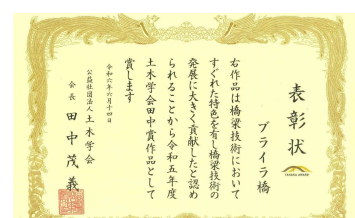 表彰状
プライラ橋
TANAKA AWARD
右作品は橋梁技術において
すぐれた特色を有し橋梁技術の
発展に大きく貢献したと認め
られることから令和五年度
土木学会田中賞作品として
賞します
令和六年六月十四日
公益社団法人 土木学会
会長 田中茂義